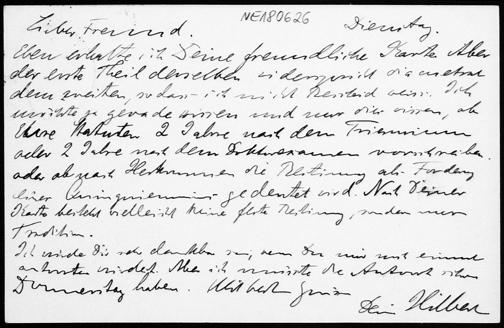 NEA180626
Lieber Freund. Dienstag.
Eben erhalte ich Deine freundliche Karte. Aber
der erste Theil derselben widerspricht diametral
dem zweiten, sodass ich nicht Bescheid weiss. Ich
möchte ja gerade wissen und nur dies wissen, ob
Eure Statuten 2 Jahre nach dem Triennium
oder 2 Jahre nach dem Doktorexamen vorschreiben
oder ob nach Herkommen die Meinung als
gedeutet wird. Nach Deiner
Karte besteht vielleicht keine feste Meinung, sondern nur
Tradition.
Ich würde Dir sehr dankbar sein, wenn Du mir noch einmal
antworten würdest. Aber ich müsste die Antwort schon
Donnerstag haben. Mit best Gruss
Dein Hilbert